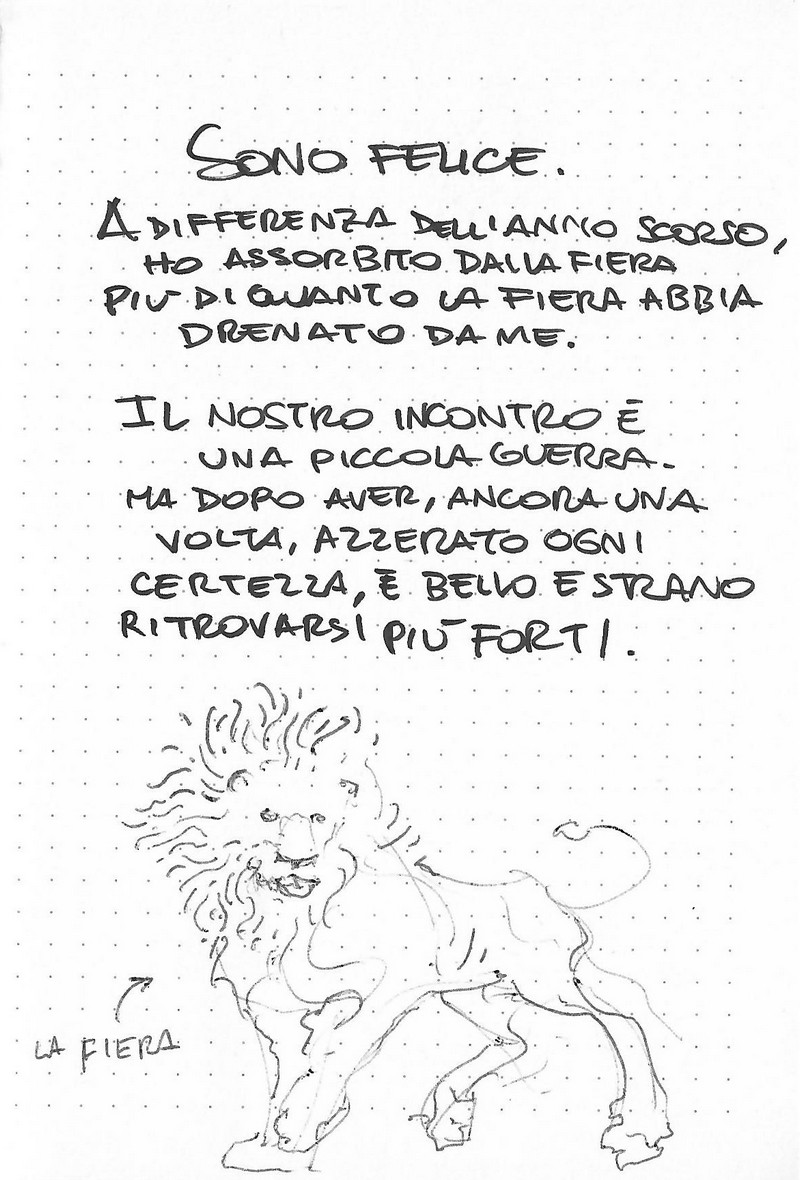 SONO FELICE.
A DIFFERENZA DELL'ANNO SCORSO,
HO ASSORBITO DALLA FIERA
PIÙ DI QUANTO LA FIERA ABBIA
DRENATO DA ME.
IL NOSTRO INCONTRO È
UNA PICCOLA GUERRA.
MA DOPO AVER, ANCORA UNA
VOLTA, AZZERATO OGNI
CERTEZZA, È BELLO E STRANO
RITROVARSI PIÙ FORTI.
LA FIERA